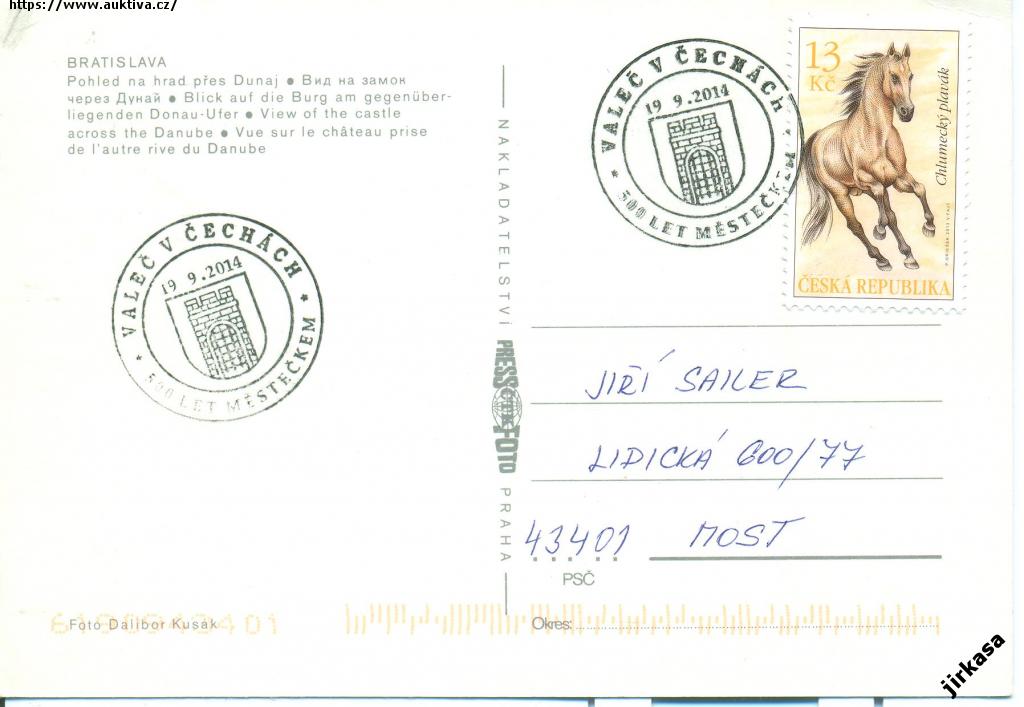 https://www.auktiva.cz/
BRATISLAVA
Pohled na hrad přes Dunaj ● Вид на замок
через Дунай ● Blick auf die Burg am gegenüber-
liegenden Donau-Ufer ● View of the castle
across the Danube ● Vue sur le château prise
de l'autre rive du Danube
VALEČ V ČECHÁCH
19 9.2014
* 500 LET MĚSTEČKEM *
13
Kč
Chlumecký plavák
ČESKÁ REPUBLIKA
VALEČ V ČECHÁCH
19 9.2014
* 500 LET MĚSTEČKEM *
NAKLADATELSTVÍ
PRESSFOTO
PRAHA
JIŘÍ SAILER
LIDICKÁ 600/77
43401 MOST
PSČ
Foto Dalibor Kusák
Okres:
jirkasa